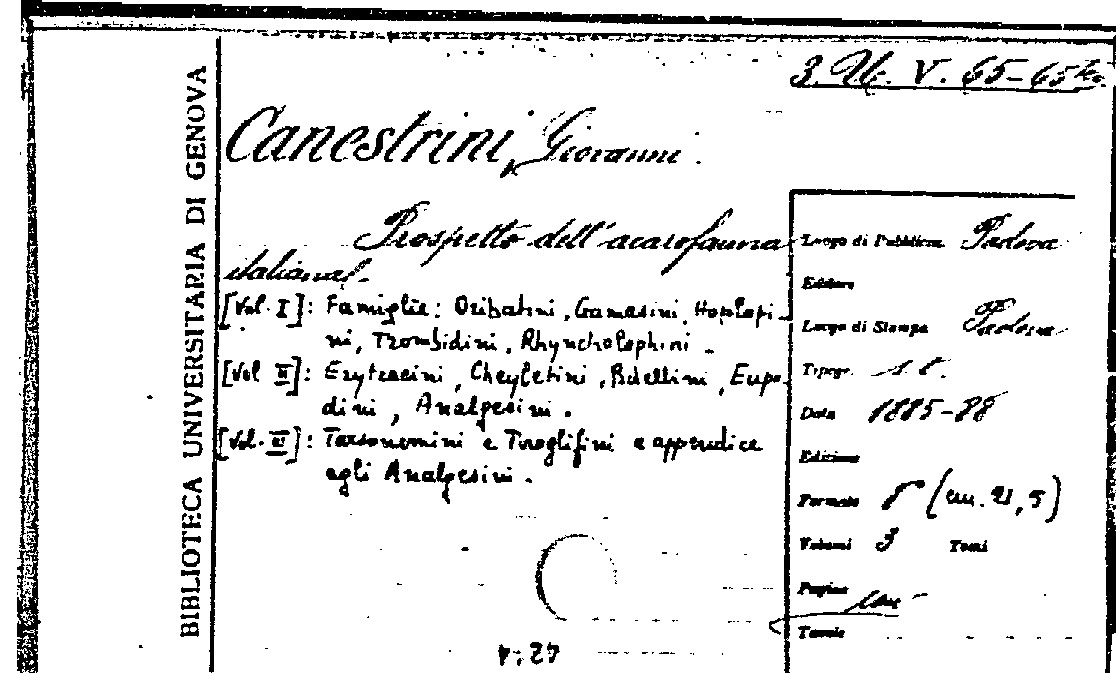 BIBLIOTECA UNIVERSITARIA DI GENOVA
3. V. 65-65
Canestrini, Giovanni.
Prospetto dell'acarofauna
italiana.
[Vol. I]: Famiglie: Oribatini, Gamasini, Hoplopi-
ni, Trombidini, Rhyncholophini.
[Vol II]: Erytracini, Cheyletini, Bdellini, Eupo-
dini, Analgesini.
[Vol. III]: Tarsonemini e Tiroglifini e appendice
agli Analgesini.
Luogo di Pubblicaz. Padova
Editore
Luogo di Stampa Padova
Tipogr. s.t.
Data 1885-88
Edizione
Formato 8° (cm. 21,5)
Volumi 3 Tomi
Pagine
Tavole